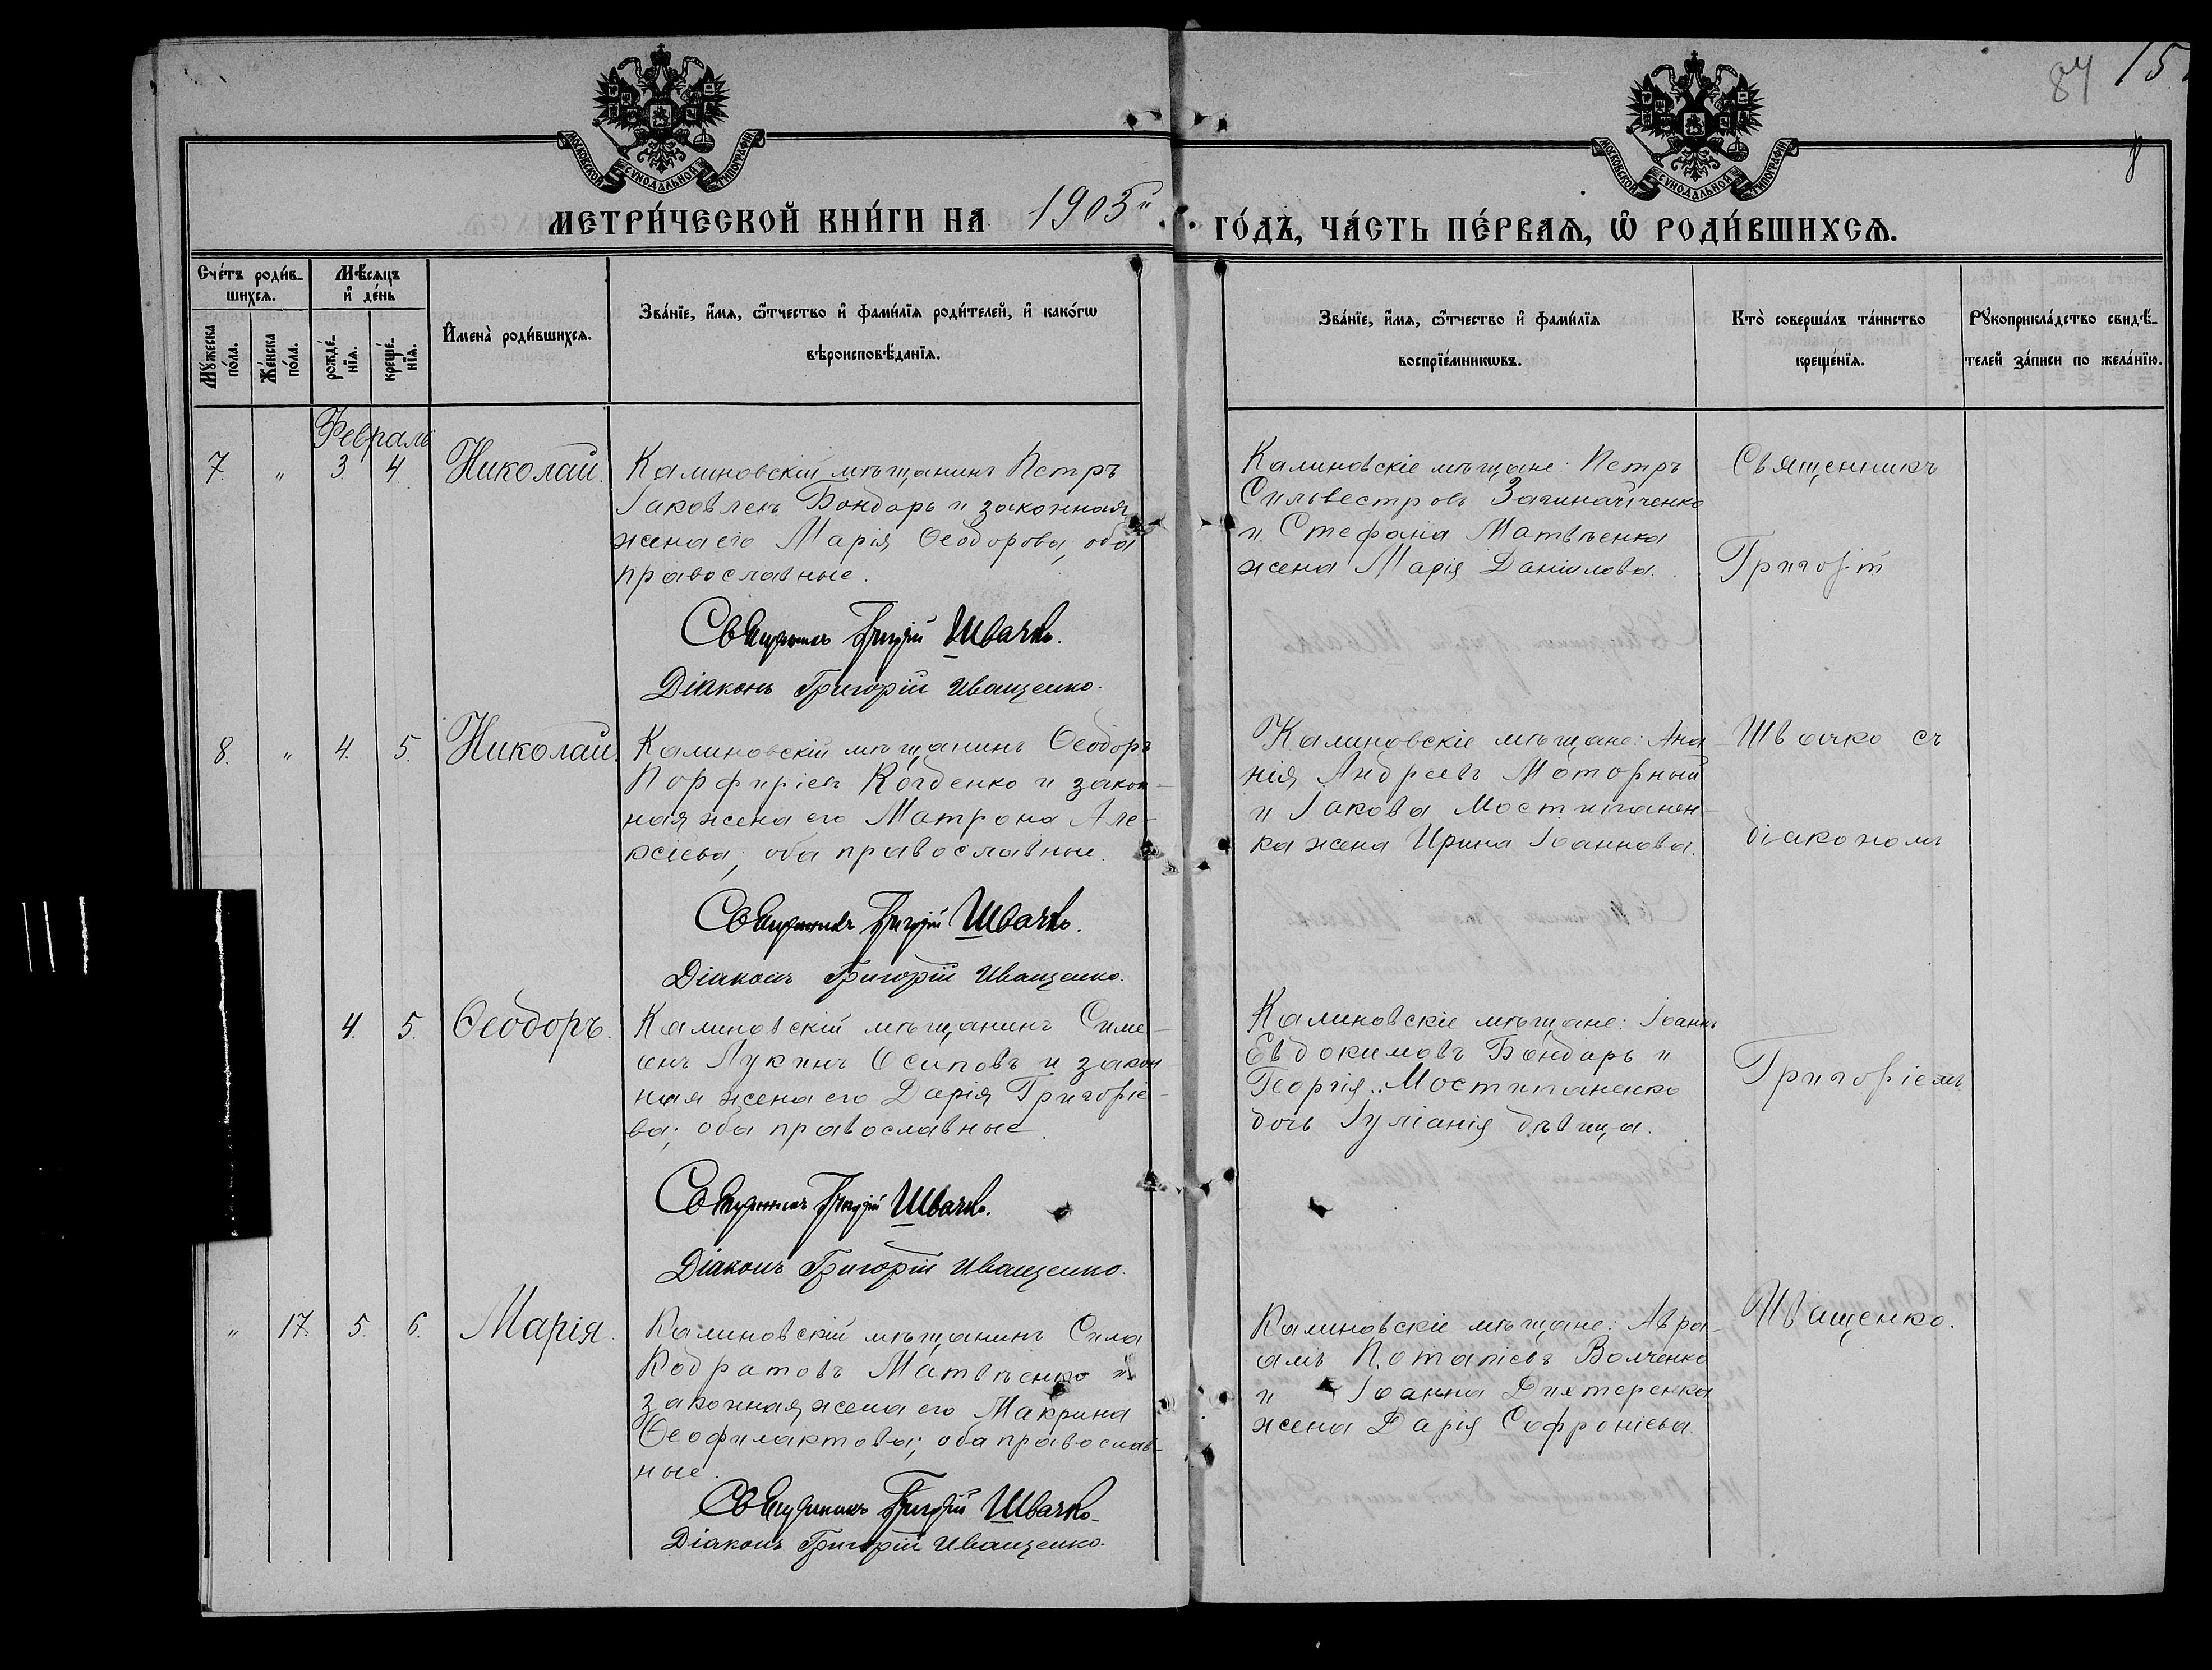 87 15
8
МОСКОВСКОЙ СѴНОДАЛЬНОЙ ТИПОГРАФІИ
МОСКОВСКОЙ СѴНОДАЛЬНОЙ ТИПОГРАФІИ
МЕТРИ́ЧЕСКОЙ КНИ́ГИ НА 1903й ГО́ДЪ, ЧА́СТЬ ПЕ́РВАѦ, Ѡ҆ РОДИ́ВШИХСѦ.
Сче́тъ роди́в-
шихсѧ.
Мѣ́сяцъ
и҆ де́нь
Мꙋ́жеска
по́ла.
Же́нска
по́ла.
рожде́-
нїѧ.
креще́-
нїѧ.
И҆мена̀ роди́вшихсѧ.
Зва́нїе, и҆́мѧ, ѻ҆́тчество и҆ фами́лїѧ роди́телей, и҆ како́гѡ
вѣроисповѣ́данїѧ.
Зва́нїе, и҆́мѧ, ѻ҆́тчество и҆ фами́лїѧ
воспрїе́мникѡвъ.
Кто̀ соверша́лъ та́инство
креще́нїѧ.
Рꙋкоприкла́дство свидѣ́-
телей за́писи по жела́нїю.
Февраль
7. " 3. 4. Николай.
Калиновскій мѣщанинъ Петръ
Іаковлевъ Бондарь и законная
жена его Марія Ѳеодорова, оба
православные.
Священникъ Григорій Швачко.
Діаконъ Григорій Иващенко.
Калиновскіе мѣщане: Петръ
Сильвестровъ
и Стефана Матвѣенка
жена Марія Даніилова.
Священникъ
Григорій
8. " 4. 5. Николай.
Калиновскій мѣщанинъ Ѳеодоръ
Порфиріевъ и закон-
ная жена его Матрона Але-
ксіева, оба православные.
Священникъ Григорій Швачко.
Діаконъ Григорій Иващенко.
Калиновскіе мѣщане: Ана-
нія Андреевъ Моторный
и Іакова Мостипанен-
ка жена Ирина Іоаннова.
Швачко съ
діакономъ
4. 5. Ѳеодоръ.
Калиновскій мѣщанинъ Симе-
онъ Лукинъ Осиповъ и закон-
ная жена его Дарія Григоріе-
ва; оба православные.
Священникъ Григорій Швачко.
Діаконъ Григорій Иващенко.
Калиновскіе мѣщане: Іоаннъ
Евдокимовъ Бондарь и
Георгія Мостипаненко
дочь Іуліанія дѣвица.
Григоріемъ
" 17. 5. 6. Марія.
Калиновскій мѣщанинъ Сила
Кодратовъ Матвѣенко и
законная жена его Макрина
Ѳеофилактова; оба православ-
ные.
Священникъ Григорій Швачко.
Діаконъ Григорій Иващенко.
Калиновскіе мѣщане: Авра-
амъ Потапіевъ Волченко
и Іоанна Дихтеренка
жена Дарія Софроніева.
Иващенко.